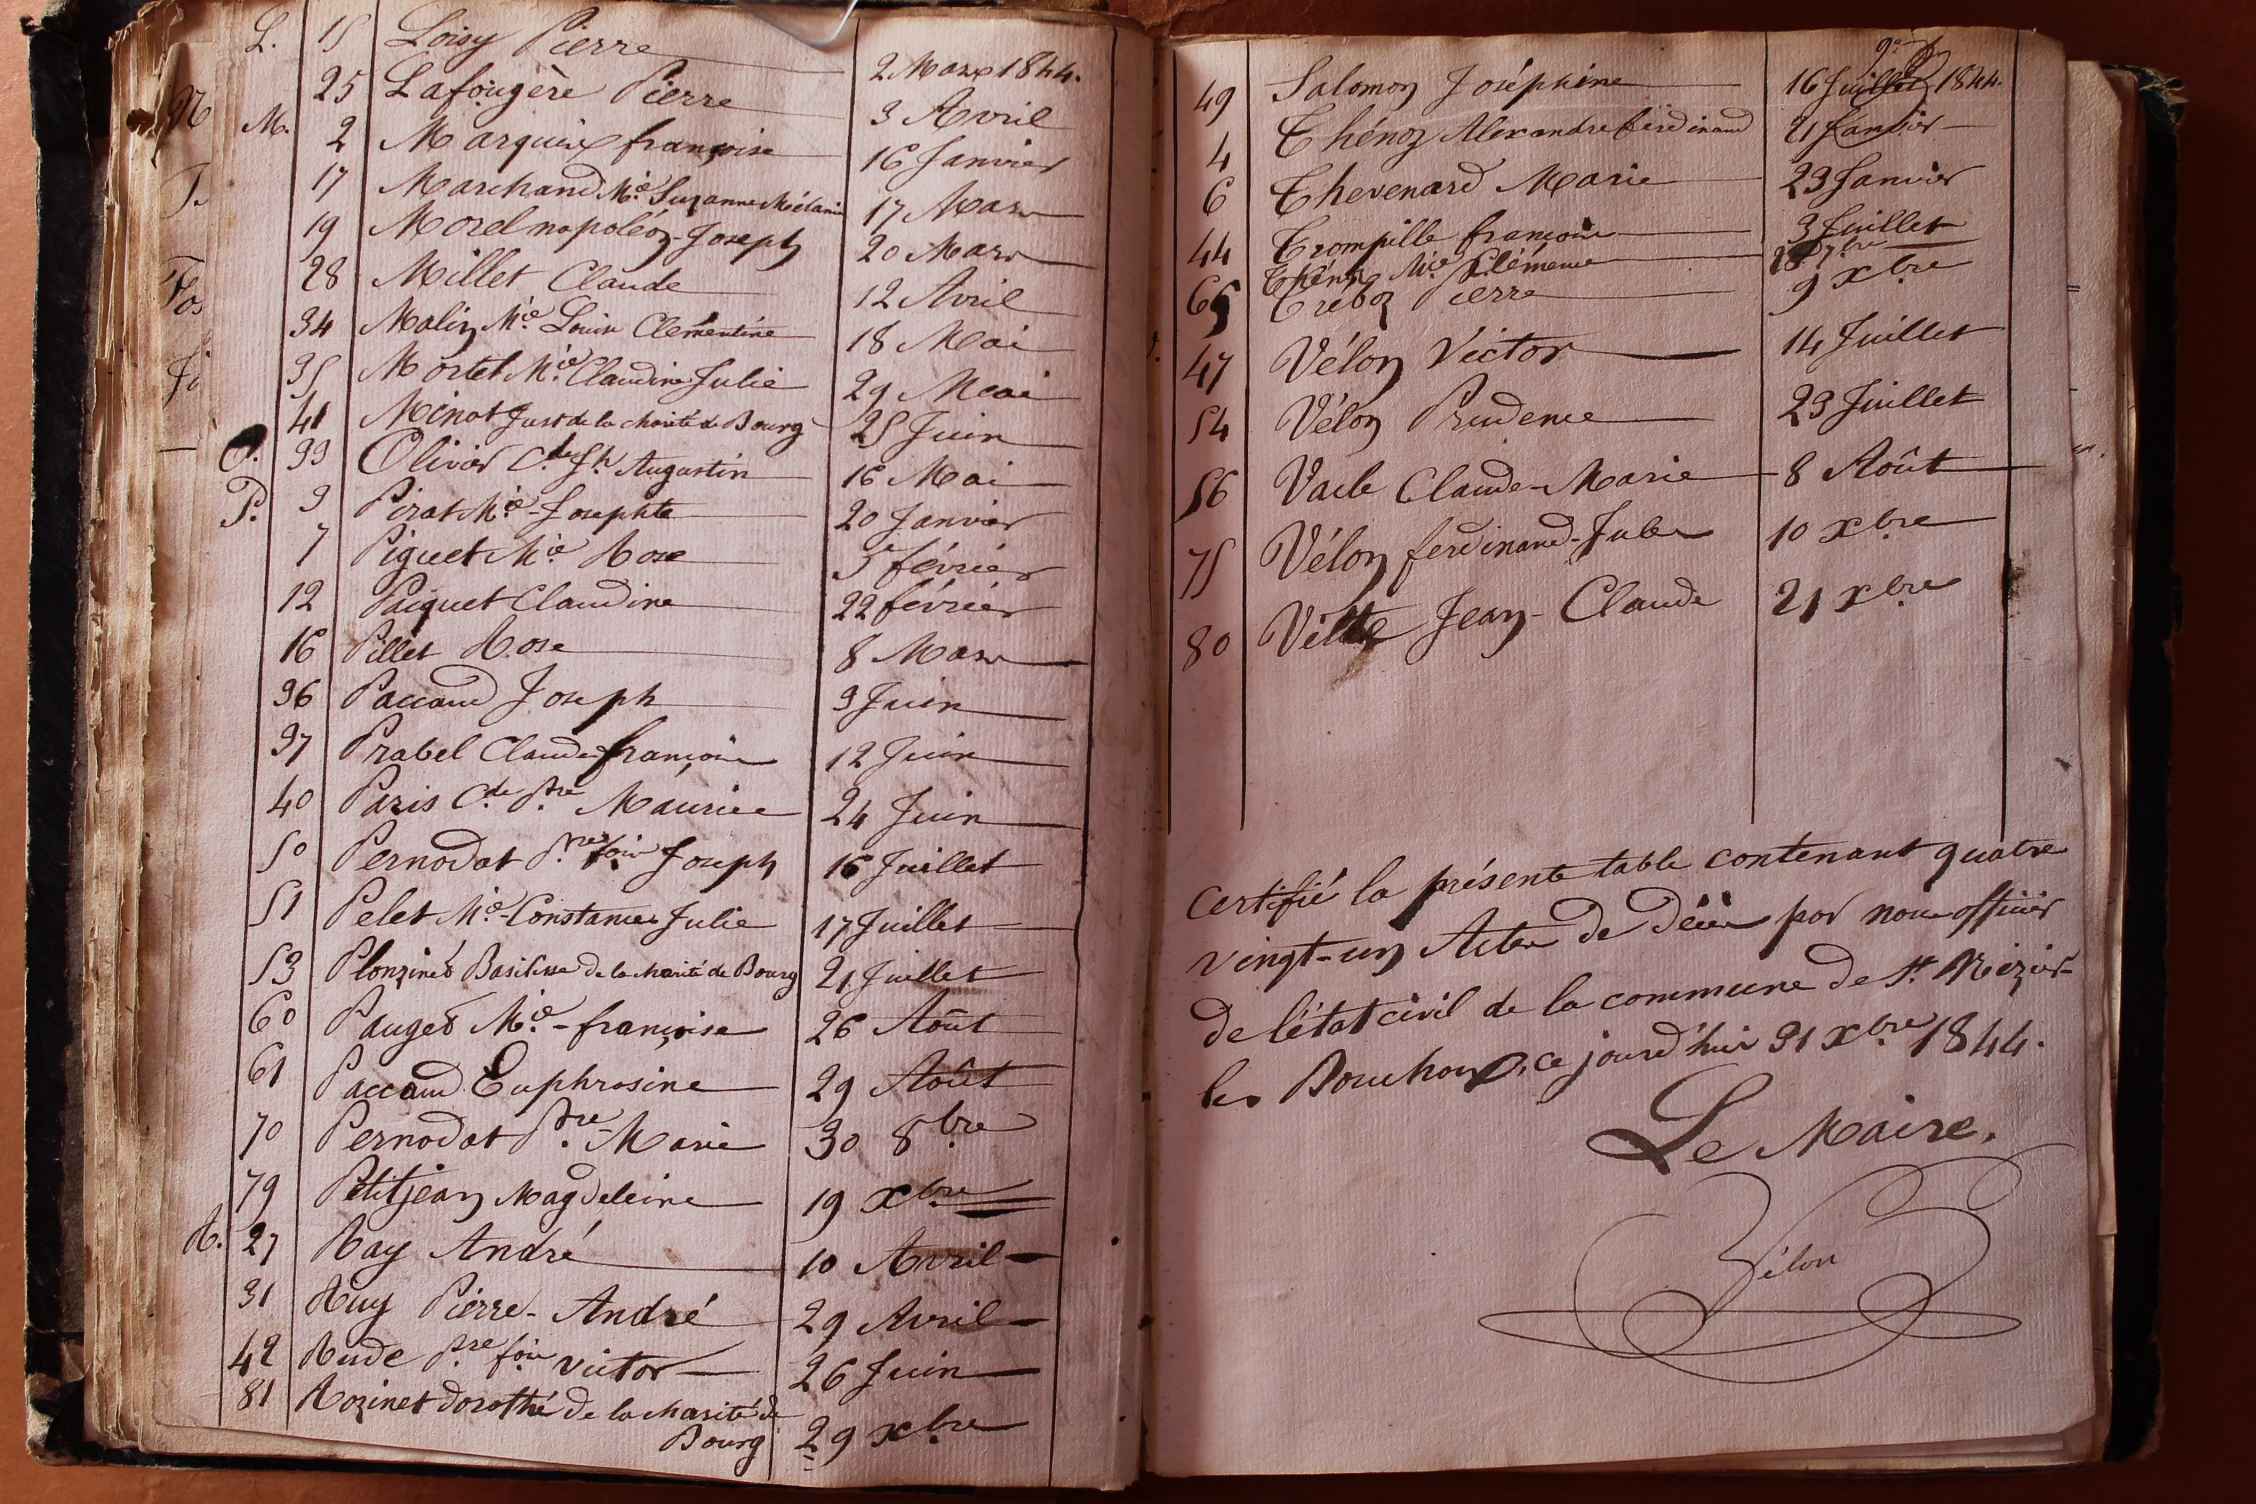 L. 15 Loisy Pierre 2 Mars 1844.
25 Lafougère Pierre 3 Avril
M. 2 Marquis françoise 16 Janvier
17 Marchand Mie. Suzanne Mélanie 17 Mars
19 Morel napoléon-Joseph 20 Mars
28 Millet Claude 12 Avril
34 Malin Mie Louise Clémentine 18 Mai
35 Mortel Mie Claudine Julie 29 Mai
41 Minot Just de la charité de Bourg 25 Juin
O. 33 Olivier Cde. Jh Augustin 16 Mai
P. 3 Pirat Mie-Josephte 20 Janvier
7 Piguet Mie Rose 5 février
12 Paquet Claudine 22 février
16 Pillet Rose 8 Mars
36 Paccaud Joseph 3 Juin
37 Prabel Claude françois 12 Juin
40 Paris Cde. Pre Maurice 24 Juin
50 Pernodat Pre fois Joseph 16 Juillet
51 Pelet Mie-Constance Julie 17 Juillet
53 Basilisse de la charité de Bourg 21 Juillet
60 Pauget Mie-françoise 26 Août
61 Paccaud Euphrosine 29 Août
70 Pernodat Pre-Marie 30 8bre
79 Petitjean Magdeleine 19 xbre
R. 27 Ray André 10 Avril
31 Ruy Pierre-André 29 Avril
42 Rude Pre fois victor 26 Juin
81 Rozinet dorothé de la charité de
Bourg 29 xbre
49 Salomon Joséphine 16 Juillet 1844.
4 Thénoz Alexandre ferdinand 21 Janvier
6 Thevenard Marie 23 Janvier
44 Trompille françois 3 Juillet
Mie Clémence 7bre
Pierre 9 xbre
V. 47 Vélon Victor 14 Juillet
54 Vélon Prudence 23 Juillet
56 Claude-Marie 8 Août
75 Vélon ferdinand-Jules 10 xbre
80 Jean-Claude 21 xbre
Certifié la présente table contenant quatre
vingt-un Actes de décès par nous officier
de l'état civil de la commune de St Nizier-
le Bouchoux, ce jourd'hui 31 xbre 1844.
Le Maire,
Vélon